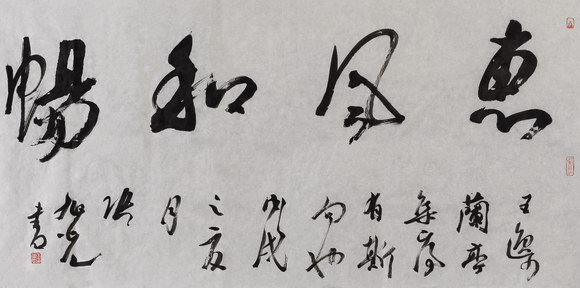 惠風和暢
王逸少
蘭亭
集序
有斯
句也
戊戌
之夏
月
張
旭光
書